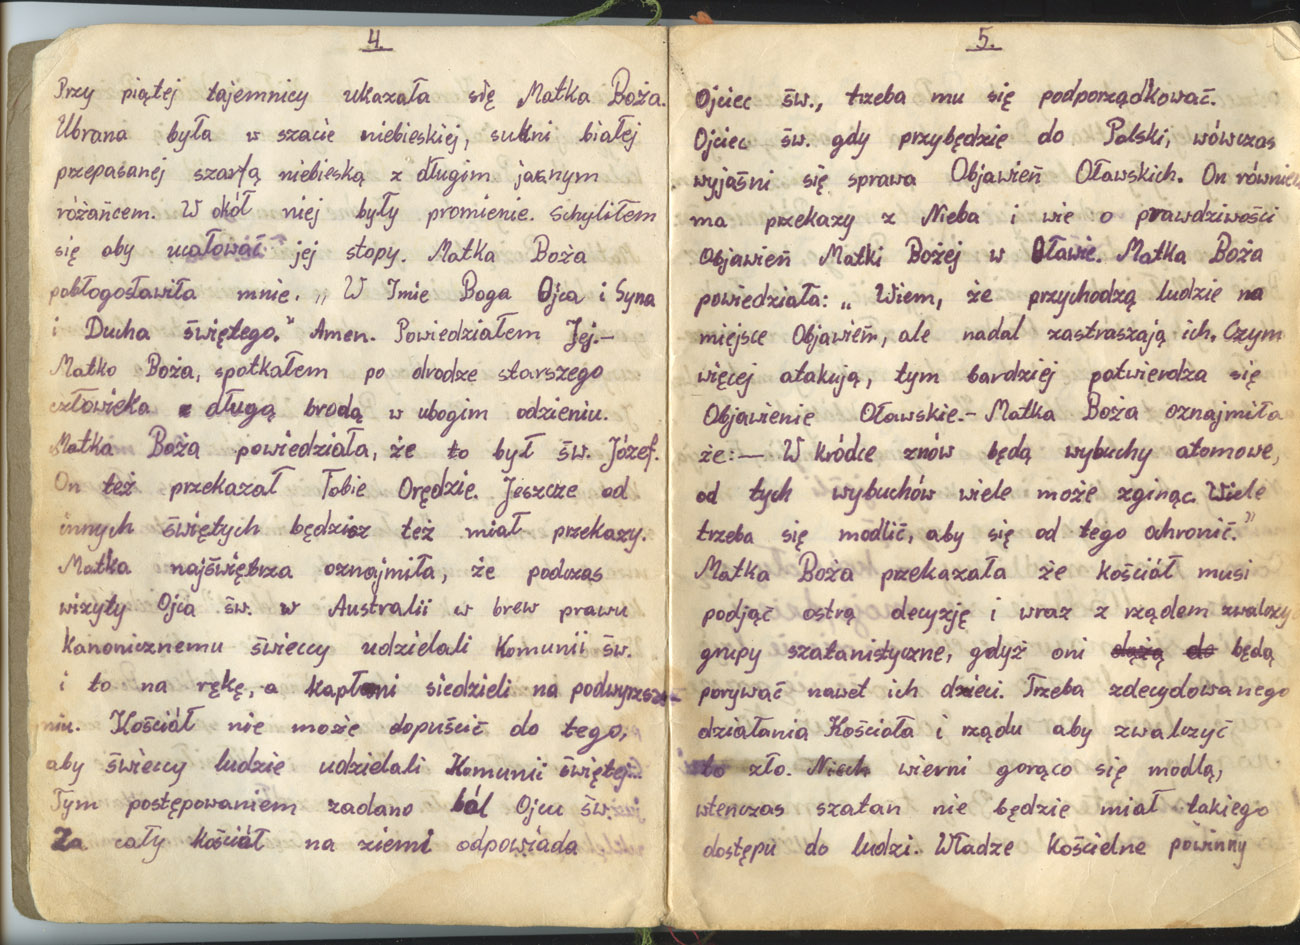 4.
Przy piątej tajemnicy ukazała się Matka Boża.
Ubrana była w szacie niebieskiej, sukni białej
przepasanej szarfą niebieską z długim jasnym
różańcem. W okół niej były promienie. Schyliłem
się aby ucałować jej stopy. Matka Boża
pobłogosławiła mnie. „ W Imie Boga Ojca i Syna
i Ducha świętego." Amen. Powiedziałem Jej.—
Matko Boża, spotkałem po drodze starszego
człowieka z długą brodą w ubogim odzieniu.
Matka Boża powiedziała, że to był św. Józef.
On też przekazał Tobie Orędzie. Jeszcze od
innych świętych będzisz też miał przekazy.
Matka najświętrza oznajmiła, że podczas
wizyty Ojca św. w Australii w brew prawu
Kanonicznemu świeccy udzielali Komunii św.
i to na rękę, a kapłani siedzieli na podwyrzsze-
niu. Kościół nie może dopuścić do tego,
aby świeccy ludzie udzielali Komunii świętej.
Tym postępowaniem zadano ból Ojcu św.
Za cały kościół na ziemi odpowiada
5.
Ojciec św., trzeba mu się podporządkować.
Ojciec św. gdy przybędzie do Polski, wówczas
wyjaśni się sprawa Objawień Oławskich. On również
ma przekazy z Nieba i wie o prawdziwości
Objawień Matki Bożej w Oławie. Matka Boża
powiedziała: „ Wiem, że przychodzą ludzie na
miejsce Objawień, ale nadal zastraszają ich. Czym
więcej atakują, tym bardziej potwierdza się
Objawienie Oławskie.- Matka Boża oznajmiła
że:— W kródce znów będą wybuchy atomowe,
od tych wybuchów wiele może zginąć. Wiele
trzeba się modlić, aby się od tego ochronić."
Matka Boża przekazała że kościół musi
podjąć ostrą decyzję i wraz z rządem zwalczyć
grupy szatanistyczne, gdyż oni dążą do będą
porywać nawet ich dzieci. Trzeba zdecydowanego
działania Kościoła i rządu aby zwalczyć
to zło. Niech wierni gorąco się modlą,
wtenczas szatan nie będzie miał takiego
dostępu do ludzi. Władze kościelne powinny